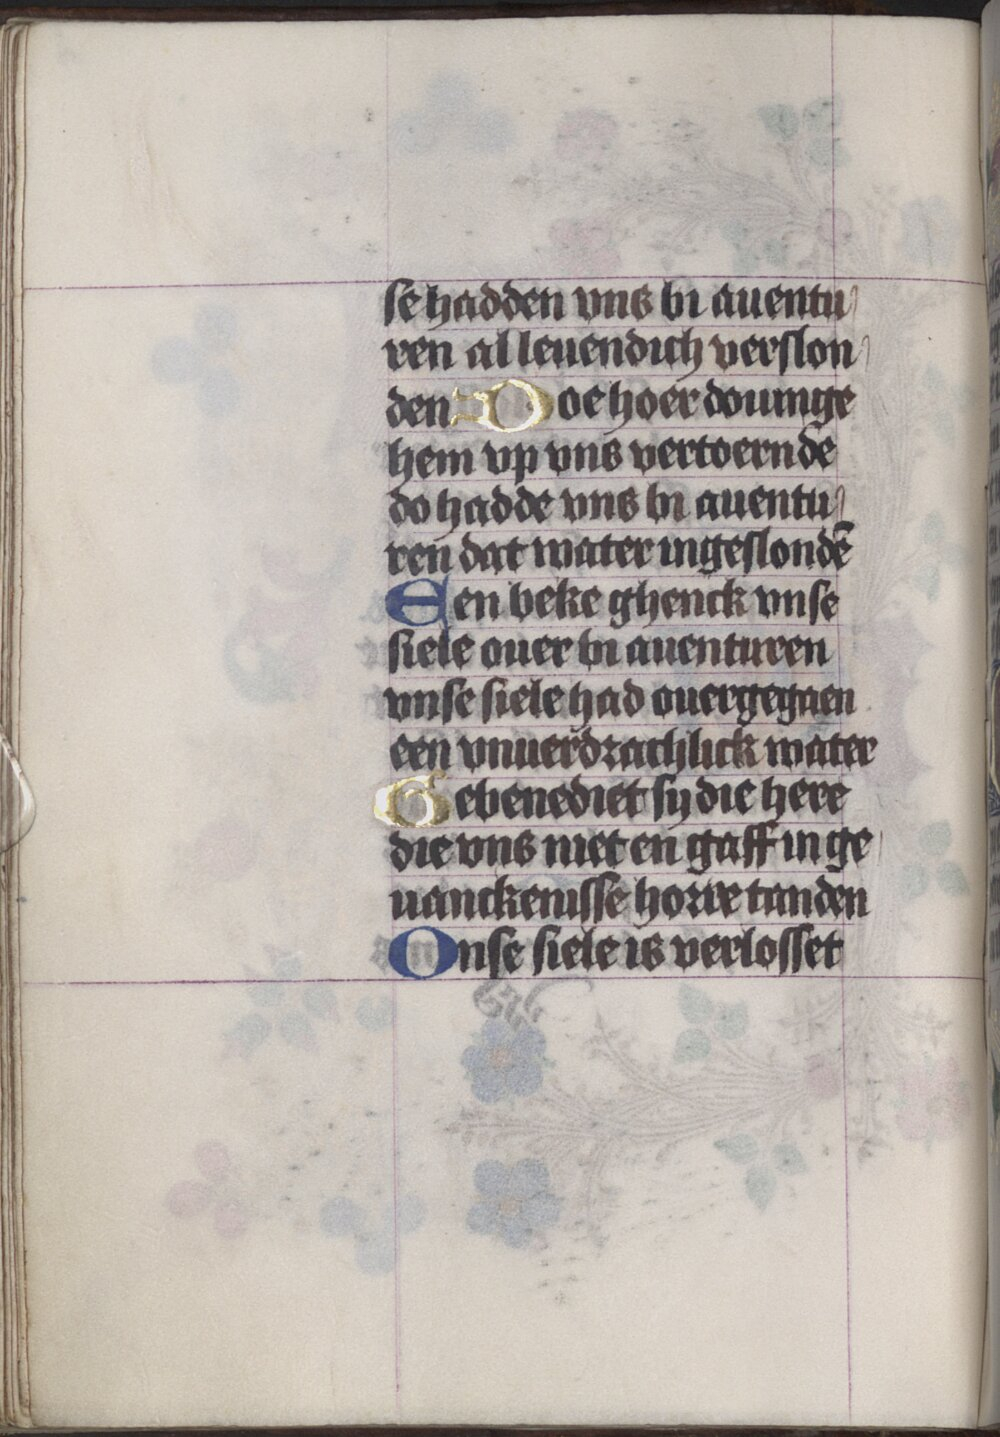 se hadden vns bi auentu
ren al leuendich verslon
den Doe hoer douinge
hem vp vns vertoernde
do hadde vns bi auentu
ren dat water ingeslondē
Een beke ghenck vnse
siele ouer bi auenturen
vnse siele had ouergegaen
een vnuerdrachlick water
Gebenediet sy die here
die vns niet en gaff in ge
uanckenisse horre tanden
Onse siele is verlosset